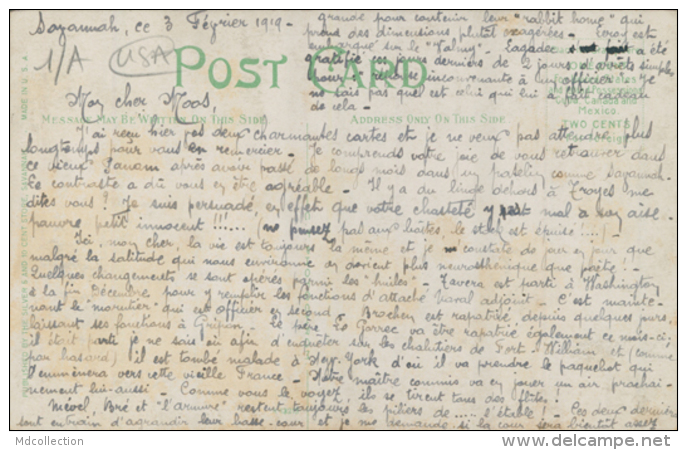 Savannah, ce 3 Février 1919 -
1/A USA
POST CARD
MADE IN U.S.A.
grande pour contenir leur "rabbit home" qui
prend des dimensions plutôt exagérées - Leroy est
embarqué sur le "Valmy" - Lagadec a été
gratifié ces jours derniers de 2 jours d'arrêts simples
pour réponse inconvenante à un officier - Je
ne sais pas quel est celui qui lui a fait cadeau
de cela -
Mon cher Moos,
MESSAGE MAY BE WRITTEN ON THIS SIDE
ADDRESS ONLY ON THIS SIDE
Canada and
Mexico.
TWO CENTS
J'ai reçu hier vos deux charmantes cartes et je ne veux pas attendre plus
longtemps pour vous en remercier - Je comprends votre joie de vous retrouver dans
ce vieux Panam après avoir passé de longs mois dans un patelin comme Savannah -
Le contraste a dû vous en être agréable - Il y a du linge dehors à Troyes me
dites vous ? Je suis persuadé en effet que votre chasteté y est mal à son aise -
pauvre petit innocent !!!.... (ne pensez pas aux boîtes, le stock est épuisé !...) -
Ici, mon cher, la vie est toujours la même et je constate de jour en jour que
malgré la solitude qui nous environne on devient plus neurasthénique que poète ! -
Quelques changements se sont opérés parmi les "huiles" - Tavera est parti à Washington
à la fin Décembre pour y remplir les fonctions d'attaché naval adjoint - C'est mainte-
nant le "morutier" qui est officier en second - Brochen est rapatrié depuis quelques jours,
laissant ses fonctions à Grifon - Le père Le Gorrec va être rapatrié également ce mois-ci,
il était parti je ne sais où afin d'enquêter sur les chalutiers de Fort-William et (comme
par hasard) il est tombé malade à New-York d'où il va prendre le paquebot qui
l'emmènera vers cette vieille France - Notre maître commis va en jouer un air prochai-
nement lui-aussi - Comme vous le voyez, ils se tirent tous des flûtes ! -
Mével, Bré et "l'armure" restent toujours les piliers de ..... s'étable ! - Ces deux derniers
sont entrain d'agrandir leur basse-cour et je me demande si la cour sera bientôt assez
Mdcollection
http://mdcollection.delcampe.net